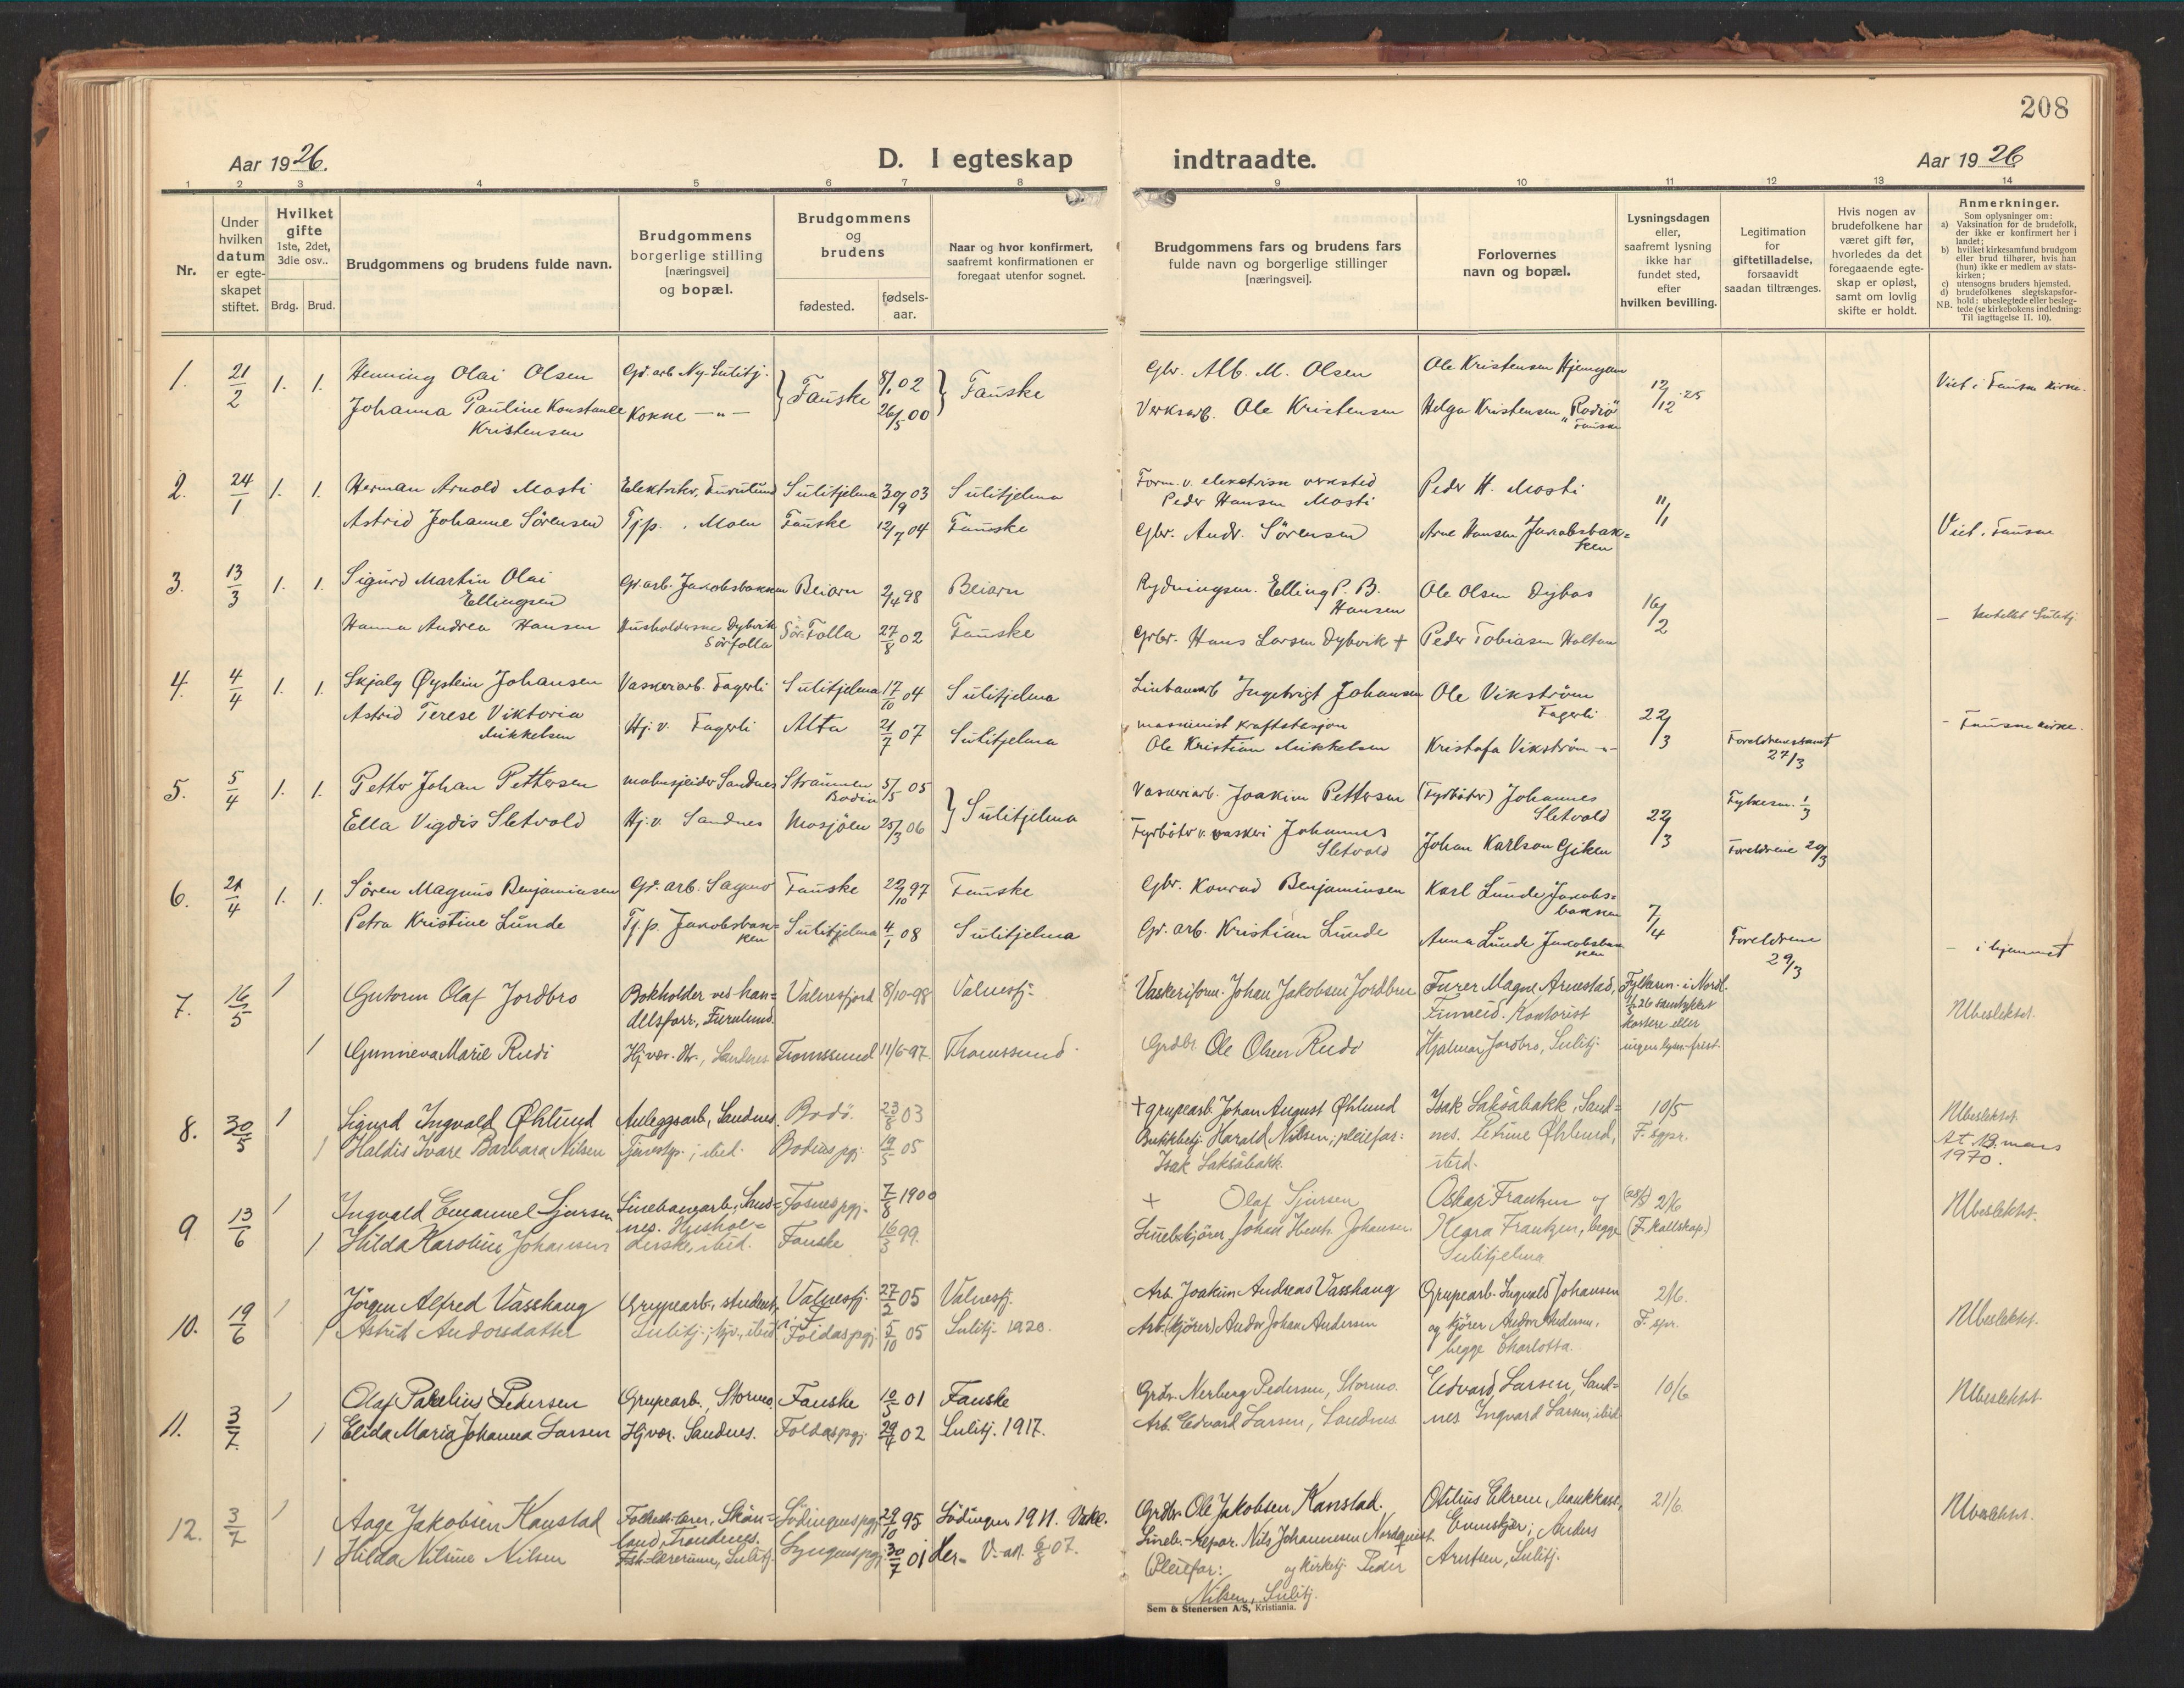 208
Aar 1926.
D. I egteskap indtraadte.
Aar 1926
1 2 3 4 5 6 7 8 9 10 11 12 13 14
Nr.
Under hvilken datum er egteskapet stiftet.
Hvilket gifte 1ste, 2det, 3die osv..
Brdg. Brud.
Brudgommens og brudens fulde navn.
Brudgommens borgerlige stilling [næringsvei] og bopæl.
Brudgommens og brudens
fødested.
fødsels-aar.
Naar og hvor konfirmert, saafremt konfirmationen er foregaat utenfor sognet.
Brudgommens fars og brudens fars fulde navn og borgerlige stillinger [næringsvei].
Forlovernes navn og bopæl.
Lysningsdagen eller, saafremt lysning ikke har fundet sted, efter hvilken bevilling.
Legitimation for giftetilladelse, forsaavidt saadan tiltrænges.
Hvis nogen av brudefolkene har været gift før, hvorledes da det foregaaende egteskap er opløst, samt om lovlig skifte er holdt.
Anmerkninger.
Som oplysninger om:
a) Vaksination for de brudefolk, der ikke er konfirmert her i landet;
b) hvilket kirkesamfund brudgom eller brud tilhører, hvis han (hun) ikke er medlem av statskirken;
c) utensogns bruders hjemsted.
d) brudefolkenes slegtskapsforhold; ubeslegtede eller beslegtede (se kirkebokens indledning: Til iagttagelse II. 10).
NB.
1. 21/2 1. 1. Henning Olai Olsen Gr. arb. Ny-Sulitj. Fauske 8/1 02 Fauske Gbr. Alb. M. Olsen Ole Kristensen 12/12-25 Viet i Fauske kirke.
Johanna Pauline Konstanse Kristensen Kokke -"- 26/5 00 Verksarb. Ole Kristensen Helga Kristensen "Radio" Fauske
2. 24/1 1. 1. Herman Arnold Mosti Elektriker, Furulund Sulitjelma 30/9 03 Sulitjelma Form. v. elektriske verksted Peder Hansen Mosti Peder H. Mosti 11/1
Astrid Johanne Sörensen Tj.p. Moen Fauske 12/7 04 Fauske Gbr. Andr. Sörensen Arne Hansen Jakobsbakken Viet. Fauske
3. 13/3 1. 1. Sigurd Martin Olai Ellingsen Gr. arb. Jakobsbakken Beiarn 2/4 98 Beiarn Rydningsm. Elling P. B. Hansen Ole Olsen Dybos 16/2
Hanna Andrea Hansen Husholderske Dybvik Sörfolla Sör-Folla 27/8 02 Fauske Grbr. Hans Larsen Dybvik + Peder Tobiasen - hotellet Sulitj.
4. 4/4 1. 1. Skjalg Øystein Johansen Vaskeriarb. Fagerli Sulitjelma 17/10 04 Sulitjelma Linbanearb Ingebrigt Johansen Ole Vikström Fagerli 22/3
Astrid Terese Viktoria Mikkelsen Hj. v. Fagerli Alta 21/7 07 Sulitjelma maskinist kraftstasjon Ole Kristian Mikkelsen Kristofa Vikström -"- Foreldrenes samt 27/3 - Fauske kirke.
5. 5/4 1. 1. Petter Johan Pettersen malmskeider Sandnes Straumen Bodin 5/5 05 Sulitjelma Vaskeriarb. Joakim Pettersen (Fyrböter) Johannes Sletvold 22/3 Fylkesm. 1/3
Ella Vigdis Sletvold Hj. v. Sandnes Mosjöen 25/3 06 Fyrböter v. vaskeri Johannes Sletvold Johan Karlson Giken Foreldrene 20/3
6. 21/4 1. 1. Sören Magnus Benjaminsen Gr. arb. Sagmo Fauske 22/10 97 Fauske Gbr. Konrad Benjaminsen Karl Lunde, Jakobsbakken 7/4
Petra Kristine Lunde Tj.p. Jakobsbakken Sulitjelma 4/1 08 Sulitjelma Gr. arb. Kristian Lunde Anna Lunde Jakobsbakken Foreldrene 29/3 - i hjemmet
7. 16/5 1 Gutorm Olaf Jordbro Bokholder ved handelsforr., Furulund. Valnesfjord 8/10-98 Valnesfj. Vaskeriform. Johan Jakobsen Jordbru Furer Magne Arnestad, Finneid. Kontorist Fylkesm. i Nordl. 1/5 26 samtykket kortere eller Ubeslektet.
1 Gunneva Marie Rudi Hj. vær. dtr., Sandnes Tromssund 11/6-97. Tromssund. Grdbr. Ole Olsen Rudi Hjalmar Jordbro, Sulitj. ingen lysn.-frist.
8. 30/5 1 Sigurd Ingvald Øhlund Anleggsarb., Sandnes. Bodö. 23/8 03 + grupearb. Johan August Øhlund Isak Laksåbakk, Sandnes. Petrine Øhlund, ibid. 10/5 F. sgpr. Ubeslektet. At 13. mars 1970.
1 Haldis Ivare Barbara Nilsen Tjenestp.; ibid. Bodins pgj. 19/5 05 Butikkbetj. Harald Nilsen; pleiefar: Isak Laksåbakk.
9 13/6 1 Ingvald Emanuel Sjursen Linebanearb., Sandnes. Fosnes pgj. 7/8 1900 + Olaf Sjursen Oskar Frantzen og (28/5) 2/6 Ubeslektet.
1 Hilda Karoline Johansen Husholderske, ibid. Fauske 16/3 99. Linebkjörer Johan Henr. Johansen. Frantzen, begge Sulitjelma (F. kallskap.)
10. 19/6 1 Jörgen Alfred Vasshaug Grupearb., student, Valnesfj. 27/2 05 Valnesfj. Arb. Joakim Andreas Vasshaug Grupearb. Ingvald Johansen 2/6. Ubeslektet.
1 Astrid Andorsdatter Sulitj.; hjv., ibid. Foldas pgj. 5/10 05 Sulitj. 1920. Arb. (kjörer) Andor Johan Andersen og kjörer Andor Andersen, begge Charlotta. F. spr.
11. 3/7. 1 Olaf Parelius Pedersen Grupearb., Stormo. Fauske 10/5 01 Fauske Grdbr. Nerberg Pedersen, Stormo. Edvard Larsen, Sandnes Ingvard Larsen, ibid 10/6 Ubeslektet.
1 Elida Maria Johanna Larsen Hj vær. Sandnes. Foldas pgj. 29/4 02 Sulitj. 1917. Arb. Edvard Larsen, Sandnes
12. 3/7 1 Aage Jakobsen Kanstad Folkesk-lærer, Skånland, Trondenes. Lödingens pgj. 29/10 95 Lödingen 1911. Vakc. Grdbr. Ole Jakobsen Kanstad. Otelius Ekrem, Evenskjer; Anders Arntsen, Sulitj. 21/6. Ubeslektet.
1 Hilda Nilsine Nilsen Fsk-lærerinne, Sulitj. Lyngens pgj. 30/7 01 Her. V. att. 6/8 07. Lineb.-Repar. Nils Johannessen Nordquist. Pleiefar: og kirketj. Peder Nilsen, Sulitj.
Sem & Stenersen A/S, Kristiania.